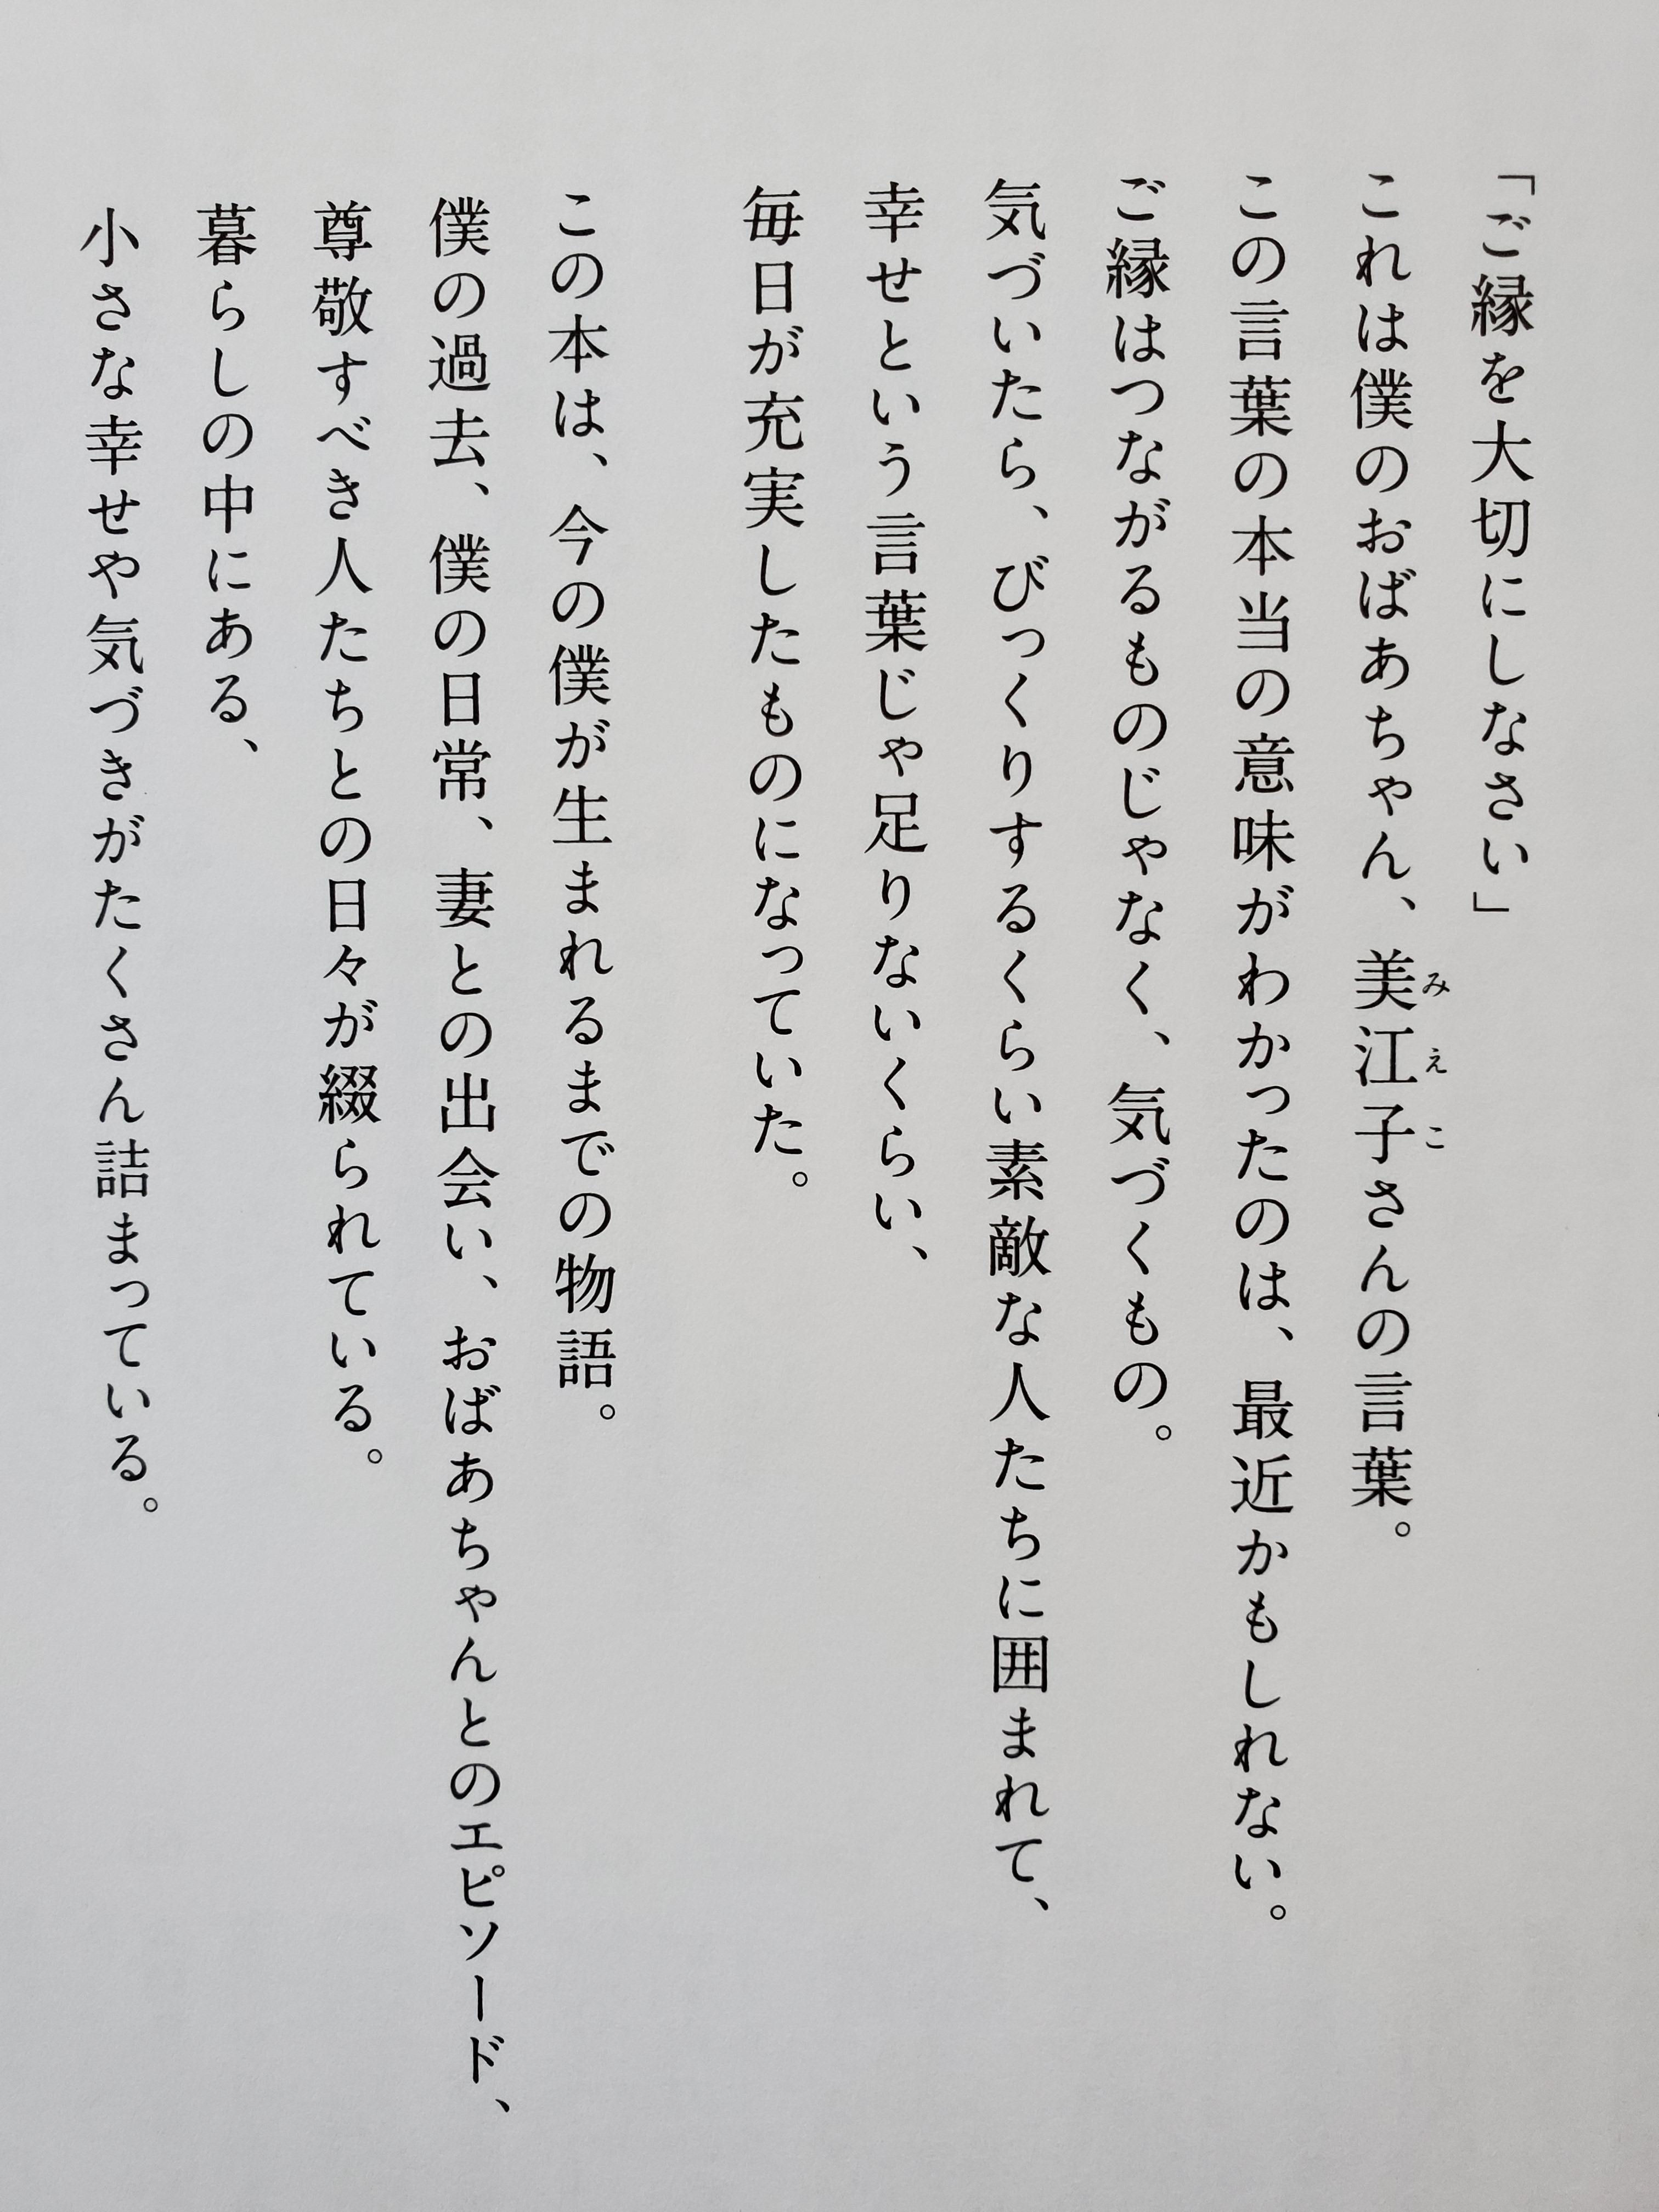 「ご縁を大切にしなさい」
これは僕のおばあちゃん、美江子さんの言葉。
この言葉の本当の意味がわかったのは、最近かもしれない。
ご縁はつながるものじゃなく、気づくもの。
気づいたら、びっくりするくらい素敵な人たちに囲まれて、
幸せという言葉じゃ足りないくらい、
毎日が充実したものになっていた。
この本は、今の僕が生まれるまでの物語。
僕の過去、僕の日常、妻との出会い、おばあちゃんとのエピソード、
尊敬すべき人たちとの日々が綴られている。
暮らしの中にある、
小さな幸せや気づきがたくさん詰まっている。